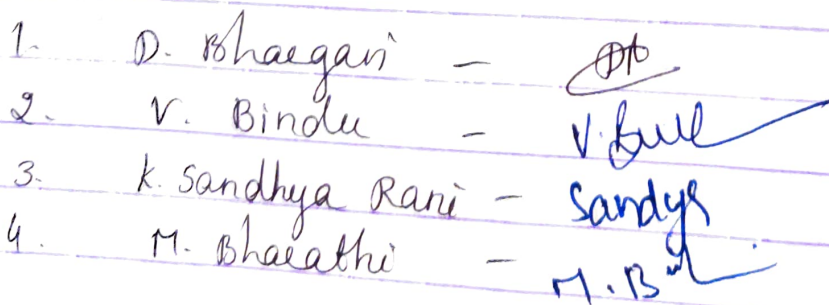 1. D. Bhargavi -
2. V. Bindu - V. Bind
3. K. Sandhya Rani - Sandya
4. M. Bharathi - M. B